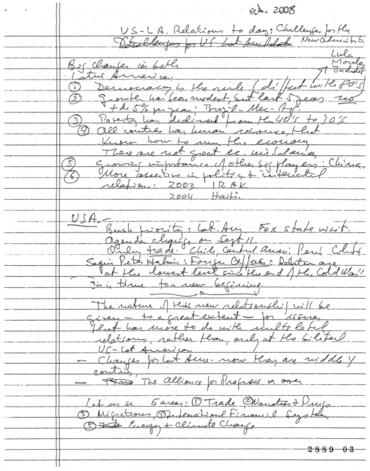 Feb. 2008
US-LA. Relations today: Challenges for the
New Administration
Big changes in both
Latin America
Lula
① Democracy is the rule (different with the 90's)
② Growth has been modest, but last 5 years
to 5% per year: Brazil - Mex - Arg
③ Poverty has declined from the 40's to 30's
④ All countries has human resources, that
Know how to run the economy
There are not great ec. mistakes
⑤ Growing importance of other big players: China
⑥ More assertive in politics & international
relation: 2003 IRAK
2004 Haiti.
USA.-
Bush priority: Lat. Am Fox state visit.
Agenda change on Sept 11.
Only trade: Chile, Central Amer. Perú Colomb
Según Peter Hakim: Foreign Affairs: Relation are
at the lowest level since the end of the Cold War"
Is a time for a new beginning.
The nature of this new relationship will be
given - to a great extent - for issues
that has more to do with multilateral
relations, rather than, only at the bilateral
US-Lat American
- Changes for Lat Amer. now they are middle Y
countries,
- The Alliance for Progress is over
Let us see 5 areas: ① Trade ② Narcotics & Drugs
③ Migrations, ④ International Financial System
⑤ Energy & Climate Change
2889 03